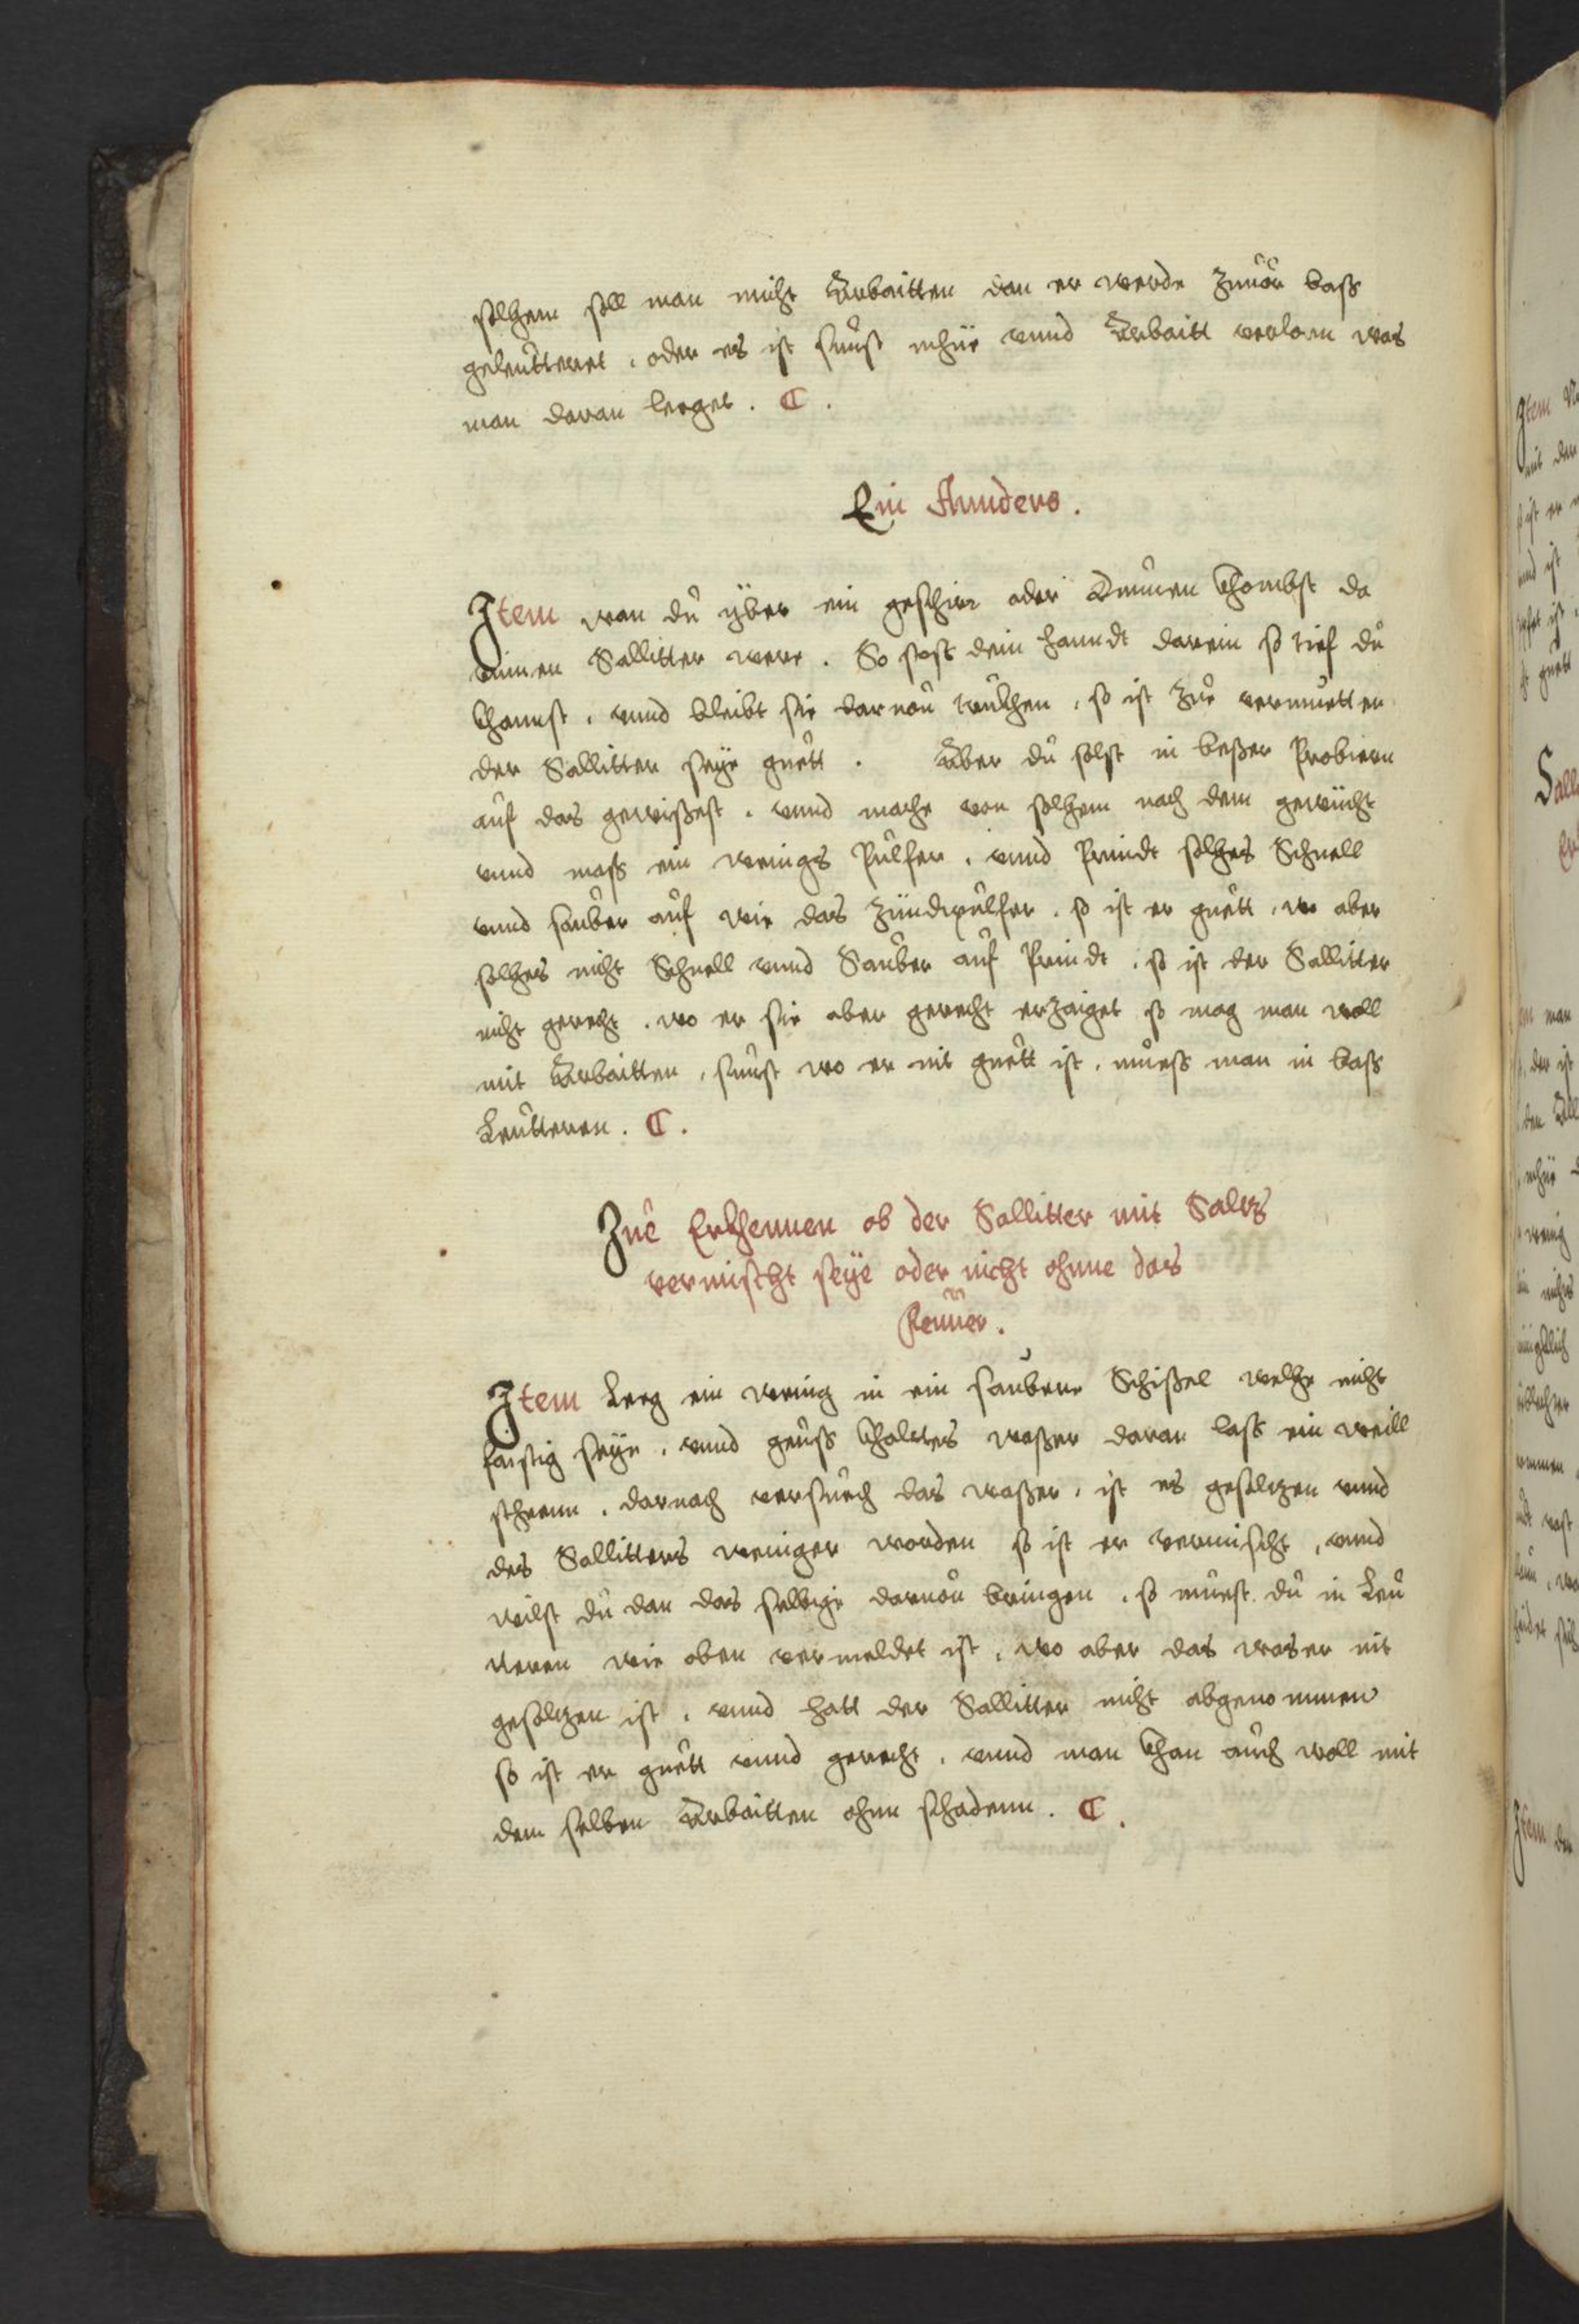 solhem soll man nicht Arbaitten dan er werde zuuor bass
geleutteret . oder es ist sunst mhüe vnnd Arbaitt verlorn was
man daran leeget . C .
Ein Annders .
Item wan du yber ein geschirr oder Tunnen khombst da
innen Sallitter were . So stoss dein hanndt darein so tief du
khannst . vnnd bleibt sie daruon trukhen , so ist zue vermuetten
der Sallitter seye guett . Aber du solst in besser Probiern
auf das gewissest . vnnd mache von solhem nach dem gewücht
vnnd mass ein wenigs Pulfer . vnnd Prindt solhes Schnell
vnnd sauber auf wie das zündpulfer . so ist er guett , wo aber
solhes nicht Schnell vnnd Sauber auf Prindt . so ist der Sallitter
nicht gerecht . wo er sie aber gerecht erzaiget so mag man woll
mit Arbaitten , sunst wo er nit guett ist , muess man in bass
Leutteren . C .
Zue Erkhennen ob der Sallitter mit Saltz
vermischt seye oder nicht ohnne das
Feuuer .
Item Leeg ein wenig in ein saubere Schissel welhe nicht
faistig seye . vnnd geuss khaltes wasser daran lass ein weill
stheenn . darnach versuech das wasser , ist es gesaltzen vnnd
des Sallitters weniger worden so ist er vermischt , vnnd
wilst du dan das selbige daruon bringen . so muest du in Leu
tteren wie oben vermeldet ist , wo aber das wasser nit
gesaltzen ist . vnnd hatt der Sallitter nicht abgenommen
so ist er guett vnnd gerecht . vnnd man khan auch woll mit
dem selben Arbaitten ohnn schadenn . C .
Item
mit den
so ist er
vnnd ist
guett
Salli
man
der ist
mhüe
wenig
Item